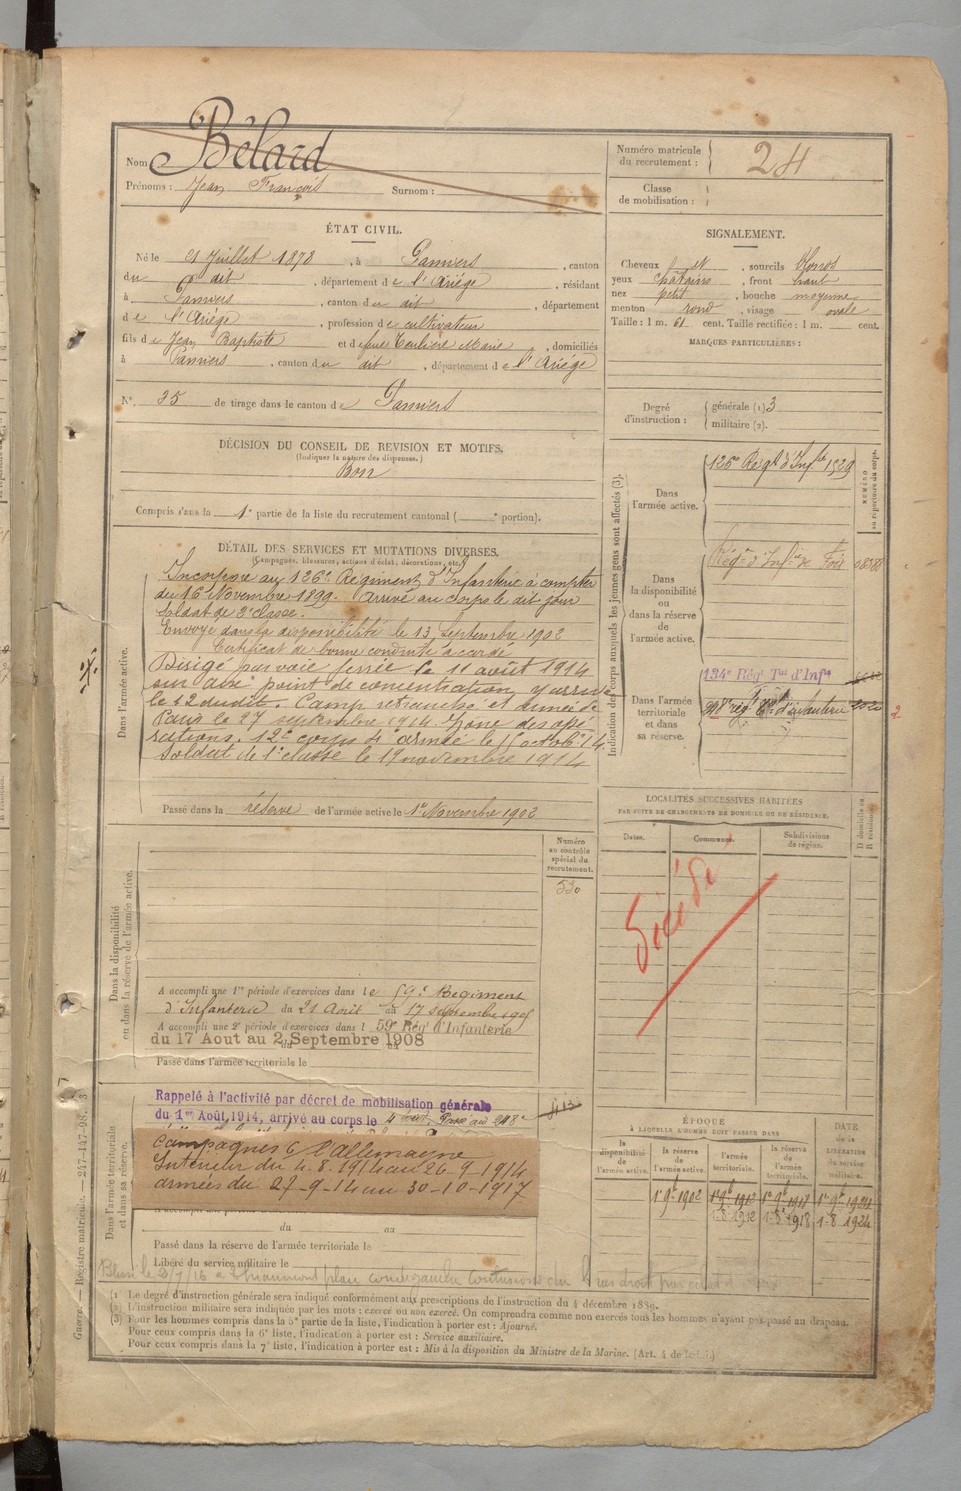 Nom Bélard
Prénoms : Jean François Surnom :
Numéro matricule du recrutement : 24
Classe de mobilisation :
ÉTAT CIVIL.
Né le 21 Juillet 1878, à Pamiers, canton
du dit, département de l'Ariège, résidant
à Pamiers, canton du dit, département
de l'Ariège, profession de cultivateur
fils de Jean Baptiste et de feue Marie, domiciliés
à Pamiers, canton du dit, département de l'Ariège
N°. 35 de tirage dans le canton de Pamiers
SIGNALEMENT.
Cheveux et, sourcils
yeux châtains, front haut
nez petit, bouche moyenne
menton rond, visage ovale
Taille : 1 m. 61 cent. Taille rectifiée : 1 m. cent.
MARQUES PARTICULIÈRES :
Degré d'instruction : générale (1) 3
militaire (2).
DÉCISION DU CONSEIL DE REVISION ET MOTIFS.
(Indiquer la nature des dispenses.)
Bon
Compris dans la 1e partie de la liste du recrutement cantonal ( e portion).
DÉTAIL DES SERVICES ET MUTATIONS DIVERSES.
(Campagnes, blessures, actions d'éclat, décorations, etc.)
Dans l'armée active.
Incorporé au 126e Régiment d'Infanterie à compter
du 16 Novembre 1899. Arrivé au corps le dit jour
Soldat de 2e classe.
Envoyé dans la disponibilité le 13 Septembre 1902
Certificat de bonne conduite accordé
Dirigé par voie ferrée le 11 août 1914
sur point de concentration, y arrive
le 12 dudit. Camp retranché et armée de
Paris le 27 septembre 1914. Zone des opé
rations. 12e corps 4e armée le octob. 14
Soldat de 1e classe le 19 novembre 1914
Passé dans la réserve de l'armée active le 1er Novembre 1902
Indication des corps auxquels les jeunes gens sont affectés (3).
NUMÉRO au répertoire du corps.
Dans l'armée active.
126e Régt d'Infie 1529
Dans la disponibilité ou dans la réserve de l'armée active.
Régt d'Infie de Foix
Dans l'armée territoriale et dans sa réserve.
134e Rég Tal d'Infie
LOCALITÉS SUCCESSIVES HABITÉES
PAR SUITE DE CHANGEMENTS DE DOMICILE OU DE RÉSIDENCE.
Dates. Communes. Subdivisions de région. D domicile ou R résidence.
Décédé
Numéro au contrôle spécial du recrutement.
530
Dans la disponibilité ou dans la réserve de l'armée active.
A accompli une 1re période d'exercices dans le 59e Régiment
d'Infanterie du 21 Août au 17 septembre 1905
A accompli une 2e période d'exercices dans l 59e Rég' d'Infanterie
du 17 Aout au 2 Septembre 1908
Passé dans l'armée territoriale le
Dans l'armée territoriale et dans sa réserve.
Rappelé à l'activité par décret de mobilisation générale
du 1er Août 1914, arrivé au corps le 4 août. Passé au 248e
Campagnes C l'allemagne
Intérieur du 4-8-1914 au 26-9-1914
armées du 27-9-14 au 30-10-1917
du au
Passé dans la réserve de l'armée territoriale le
Libéré du service militaire le
ÉPOQUE
À LAQUELLE L'HOMME DOIT PASSER DANS
la disponibilité de l'armée active. la réserve de l'armée active. l'armée territoriale. la réserve de l'armée territoriale. DATE de la LIBÉRATION du service militaire.
1er 9bre 1902 1er 9bre 1912 1er 9bre 1918 1er 9bre 1924
1-8 1912 1-8 1918 1-8 1924
(1 Le degré d'instruction générale sera indiqué conformément aux prescriptions de l'instruction du 4 décembre 1889.
(2 L'instruction militaire sera indiquée par les mots : exercé ou non exercé. On comprendra comme non exercés tous les hommes n'ayant pas passé au drapeau.
(3) Pour les hommes compris dans la 5e partie de la liste, l'indication à porter est : Ajourné.
Pour ceux compris dans la 6e liste, l'indication à porter est : Service auxiliaire.
Pour ceux compris dans la 7e liste, l'indication à porter est : Mis à la disposition du Ministre de la Marine. (Art. 4 de la loi.)
Guerre. — Registre matricule. — 247-147-98. [3]